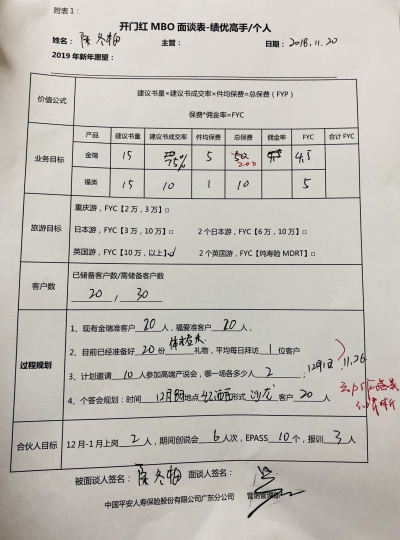 附表1：
开门红 MBO 面谈表-绩优高手/个人
姓名：陈冬梅 主管： 日期：2018.11.20
2019 年新年愿望：
价值公式
建议书量×建议书成交率×件均保费=总保费（FYP）
保费*佣金率=FYC
业务目标
产品 建议书量 建议书成交率 件均保费 总保费 佣金率 FYC 合计 FYC
金瑞 15 75% 5 200 45
福类 15 10 1 10 5
旅游目标
重庆游，FYC【2 万，3 万】□
日本游，FYC【3 万，10 万】□ 2 个日本游，FYC【6 万，10 万】□
英国游，FYC【10 万，以上】□ 2 个英国游，FYC【纯寿险 MDRT】□
客户数
已储备客户数/需储备客户数
20，30
过程规划
1、现有金瑞准客户 20 人，福爱准客户 20 人，
2、目前已经准备好 20 份 礼物，平均每日拜访 1 位客户
3、计划邀请 10 人参加高端产说会，哪一场各多少人 2；12月1日、11.26
4、个答会规划：时间 12月8日 地点 酒店 形式 沙龙 客户 20 人
合伙人目标
12 月-1 月上岗 2 人，期间创说会 6 人次，EPASS 10 个，报训 3 人
被面谈人签名：陈冬梅 面谈人签名：
中国平安人寿保险股份有限公司广东分公司 营销管理部